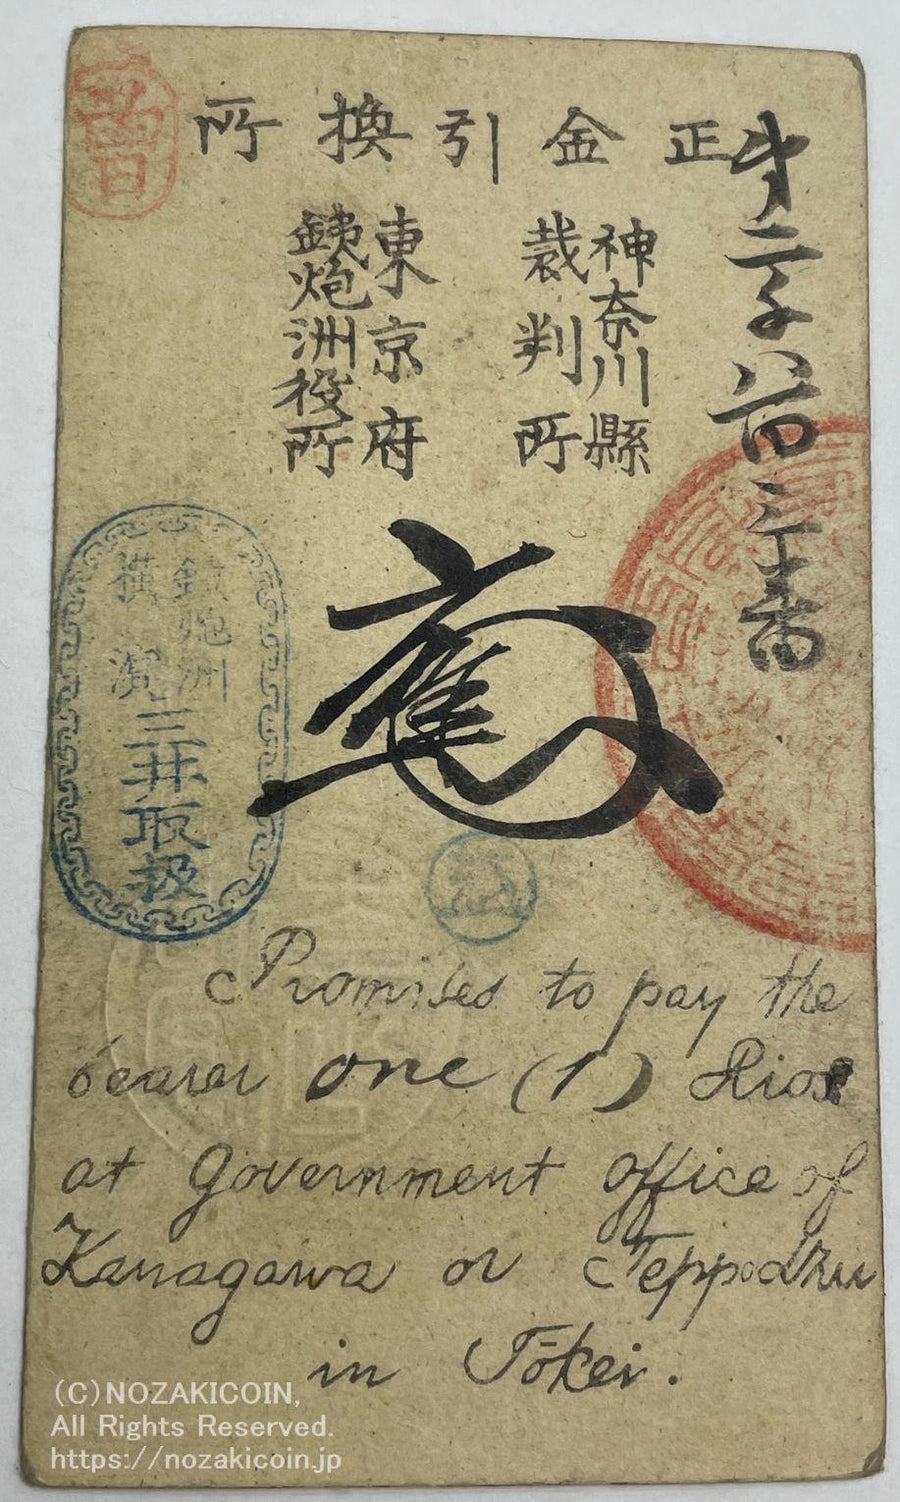 正金引換所
神奈川縣
裁判所
東京府
銕炮洲役所
第二千八百三十番
銕炮洲
横濱
三井取扱
Promises to pay the
bearer one (1) Rios
at Government office of
Kanagawa or Teppodzu
in Tōkei.
(C)NOZAKICOIN,
All Rights Reserved.
https://nozakicoin.jp